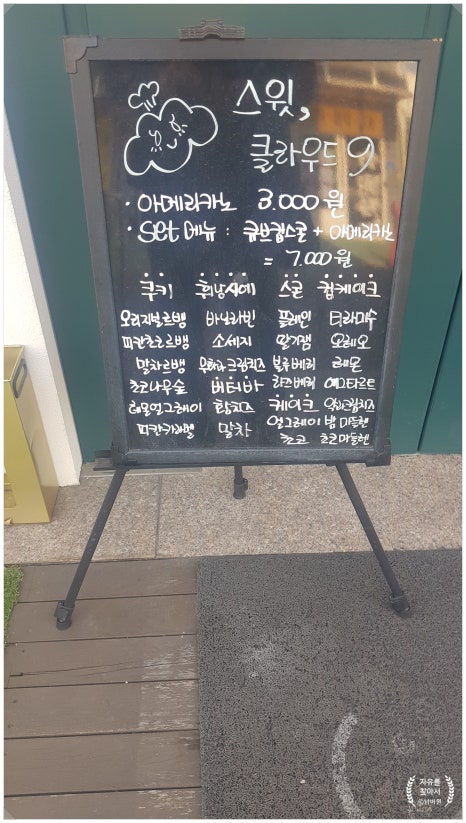 스윗,
클라우드 9.
· 아메리카노 3.000원
· Set 메뉴 : 큐브컵스콘 + 아메리카노
= 7.000원
쿠키 휘낭시에 스콘 컵케이크
오리지널르뱅 바닐라빈 플레인 티라미수
피칸초코르뱅 소세지 딸기잼 오레오
말차르뱅 무화과크림치즈 블루베리 레몬
초코나무숲 버터바 라즈베리 에그타르트
레몬얼그레이 황치즈 케이크 크림치즈
피칸카라멜 말차 얼그레이 밤 마들렌
초코 초코마들렌
자유를
찾아서